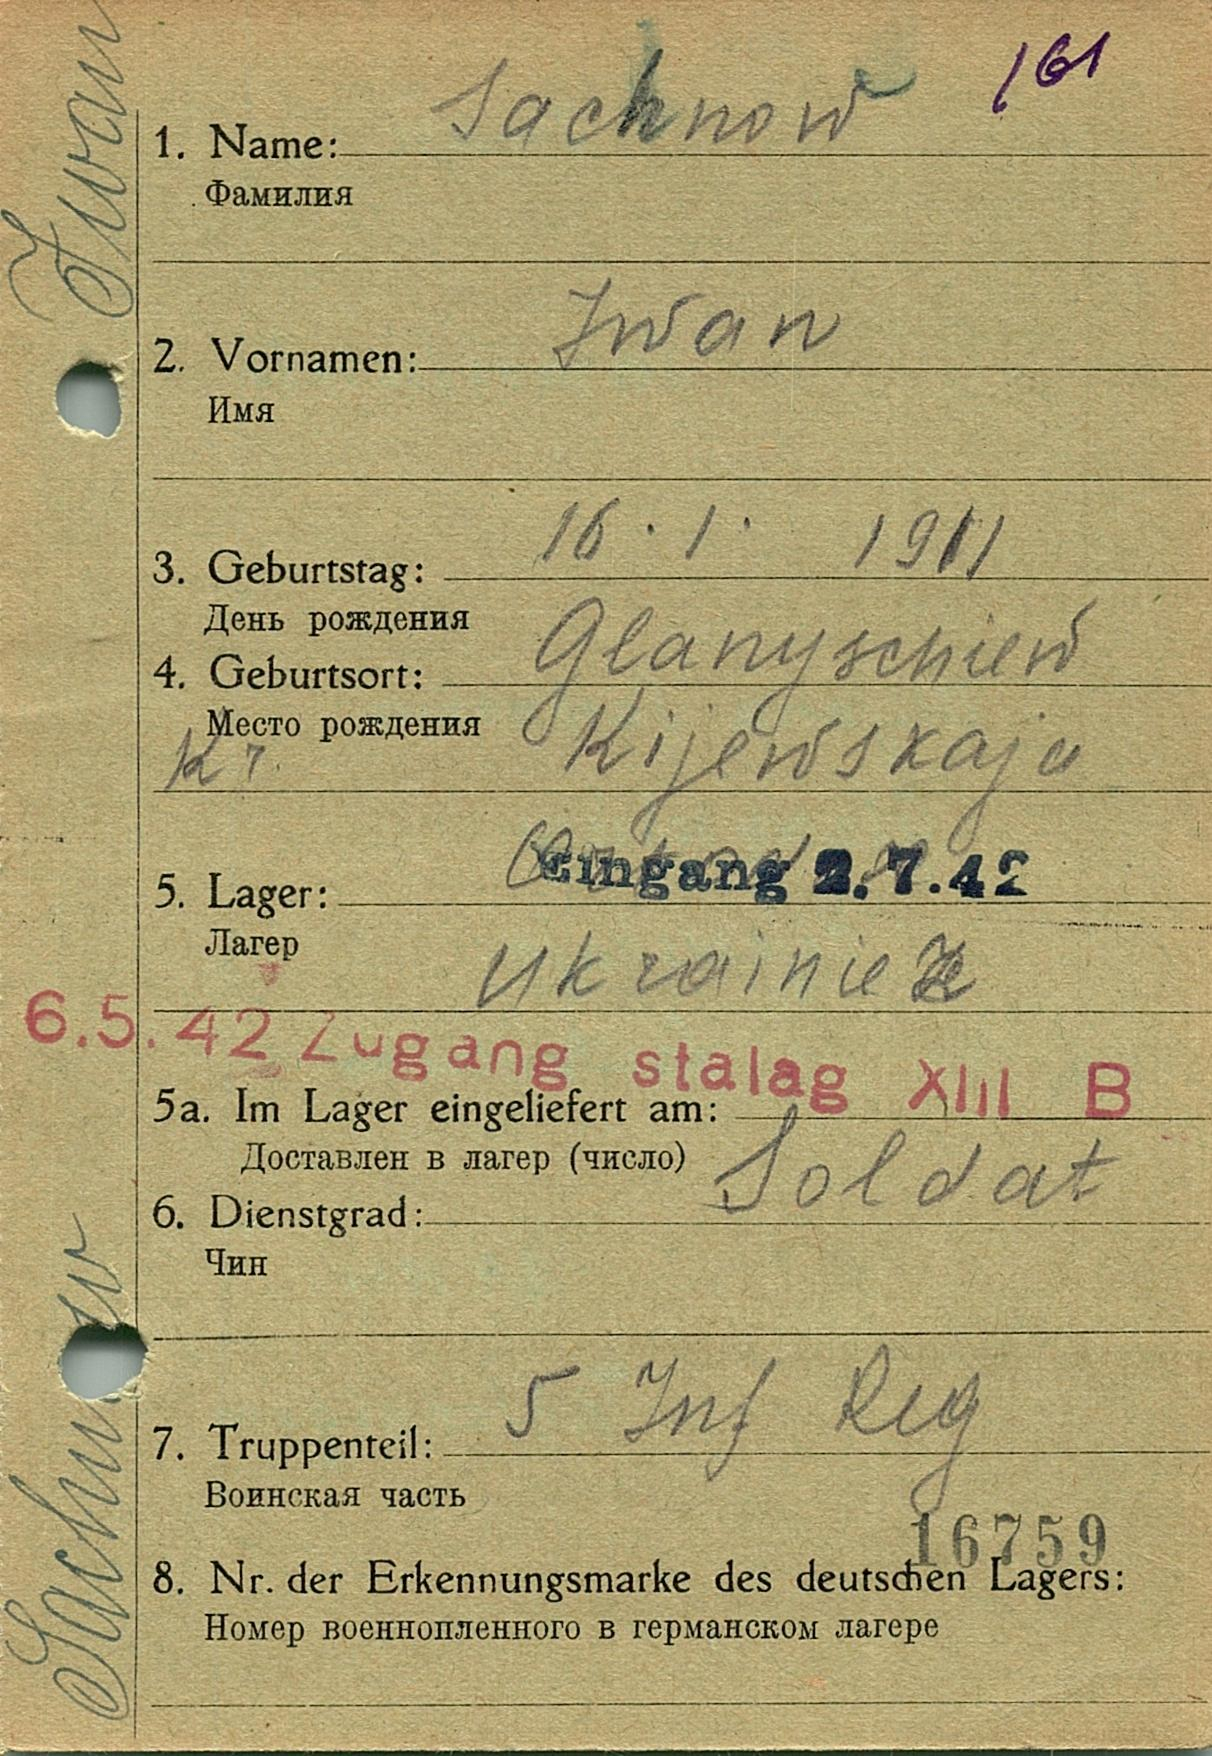 161
Sachnow
1. Name:
Фамилия
Iwan
2. Vornamen:
Имя
16. 1. 1911
3. Geburtstag:
День рождения
Glanyschiew
4. Geburtsort:
Место рождения
Kijewskaja
Kr.
Eingang 2.7.42
5. Lager:
Лагер
Ukrainie
6.5.42 Zugang stalag XIII B
5a. Im Lager eingeliefert am:
Доставлен в лагер (число)
Soldat
6. Dienstgrad:
Чин
5 Inf Reg
7. Truppenteil:
Воинская часть
16759
8. Nr. der Erkennungsmarke des deutschen Lagers:
Номер военнопленного в германском лагере
Sachnow Iwan